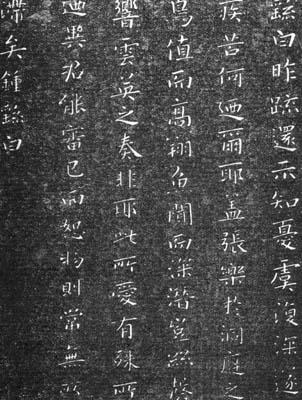 繇白昨疏還示知憂虞復深遂
疾苦何迺爾耶蓋張樂於洞庭之
鳥值而高翔魚聞而深潛豈絲磬
響雲英之奏非耶此所愛有殊所
迺與君能審己而恕物則常無所
滯矣鍾繇白